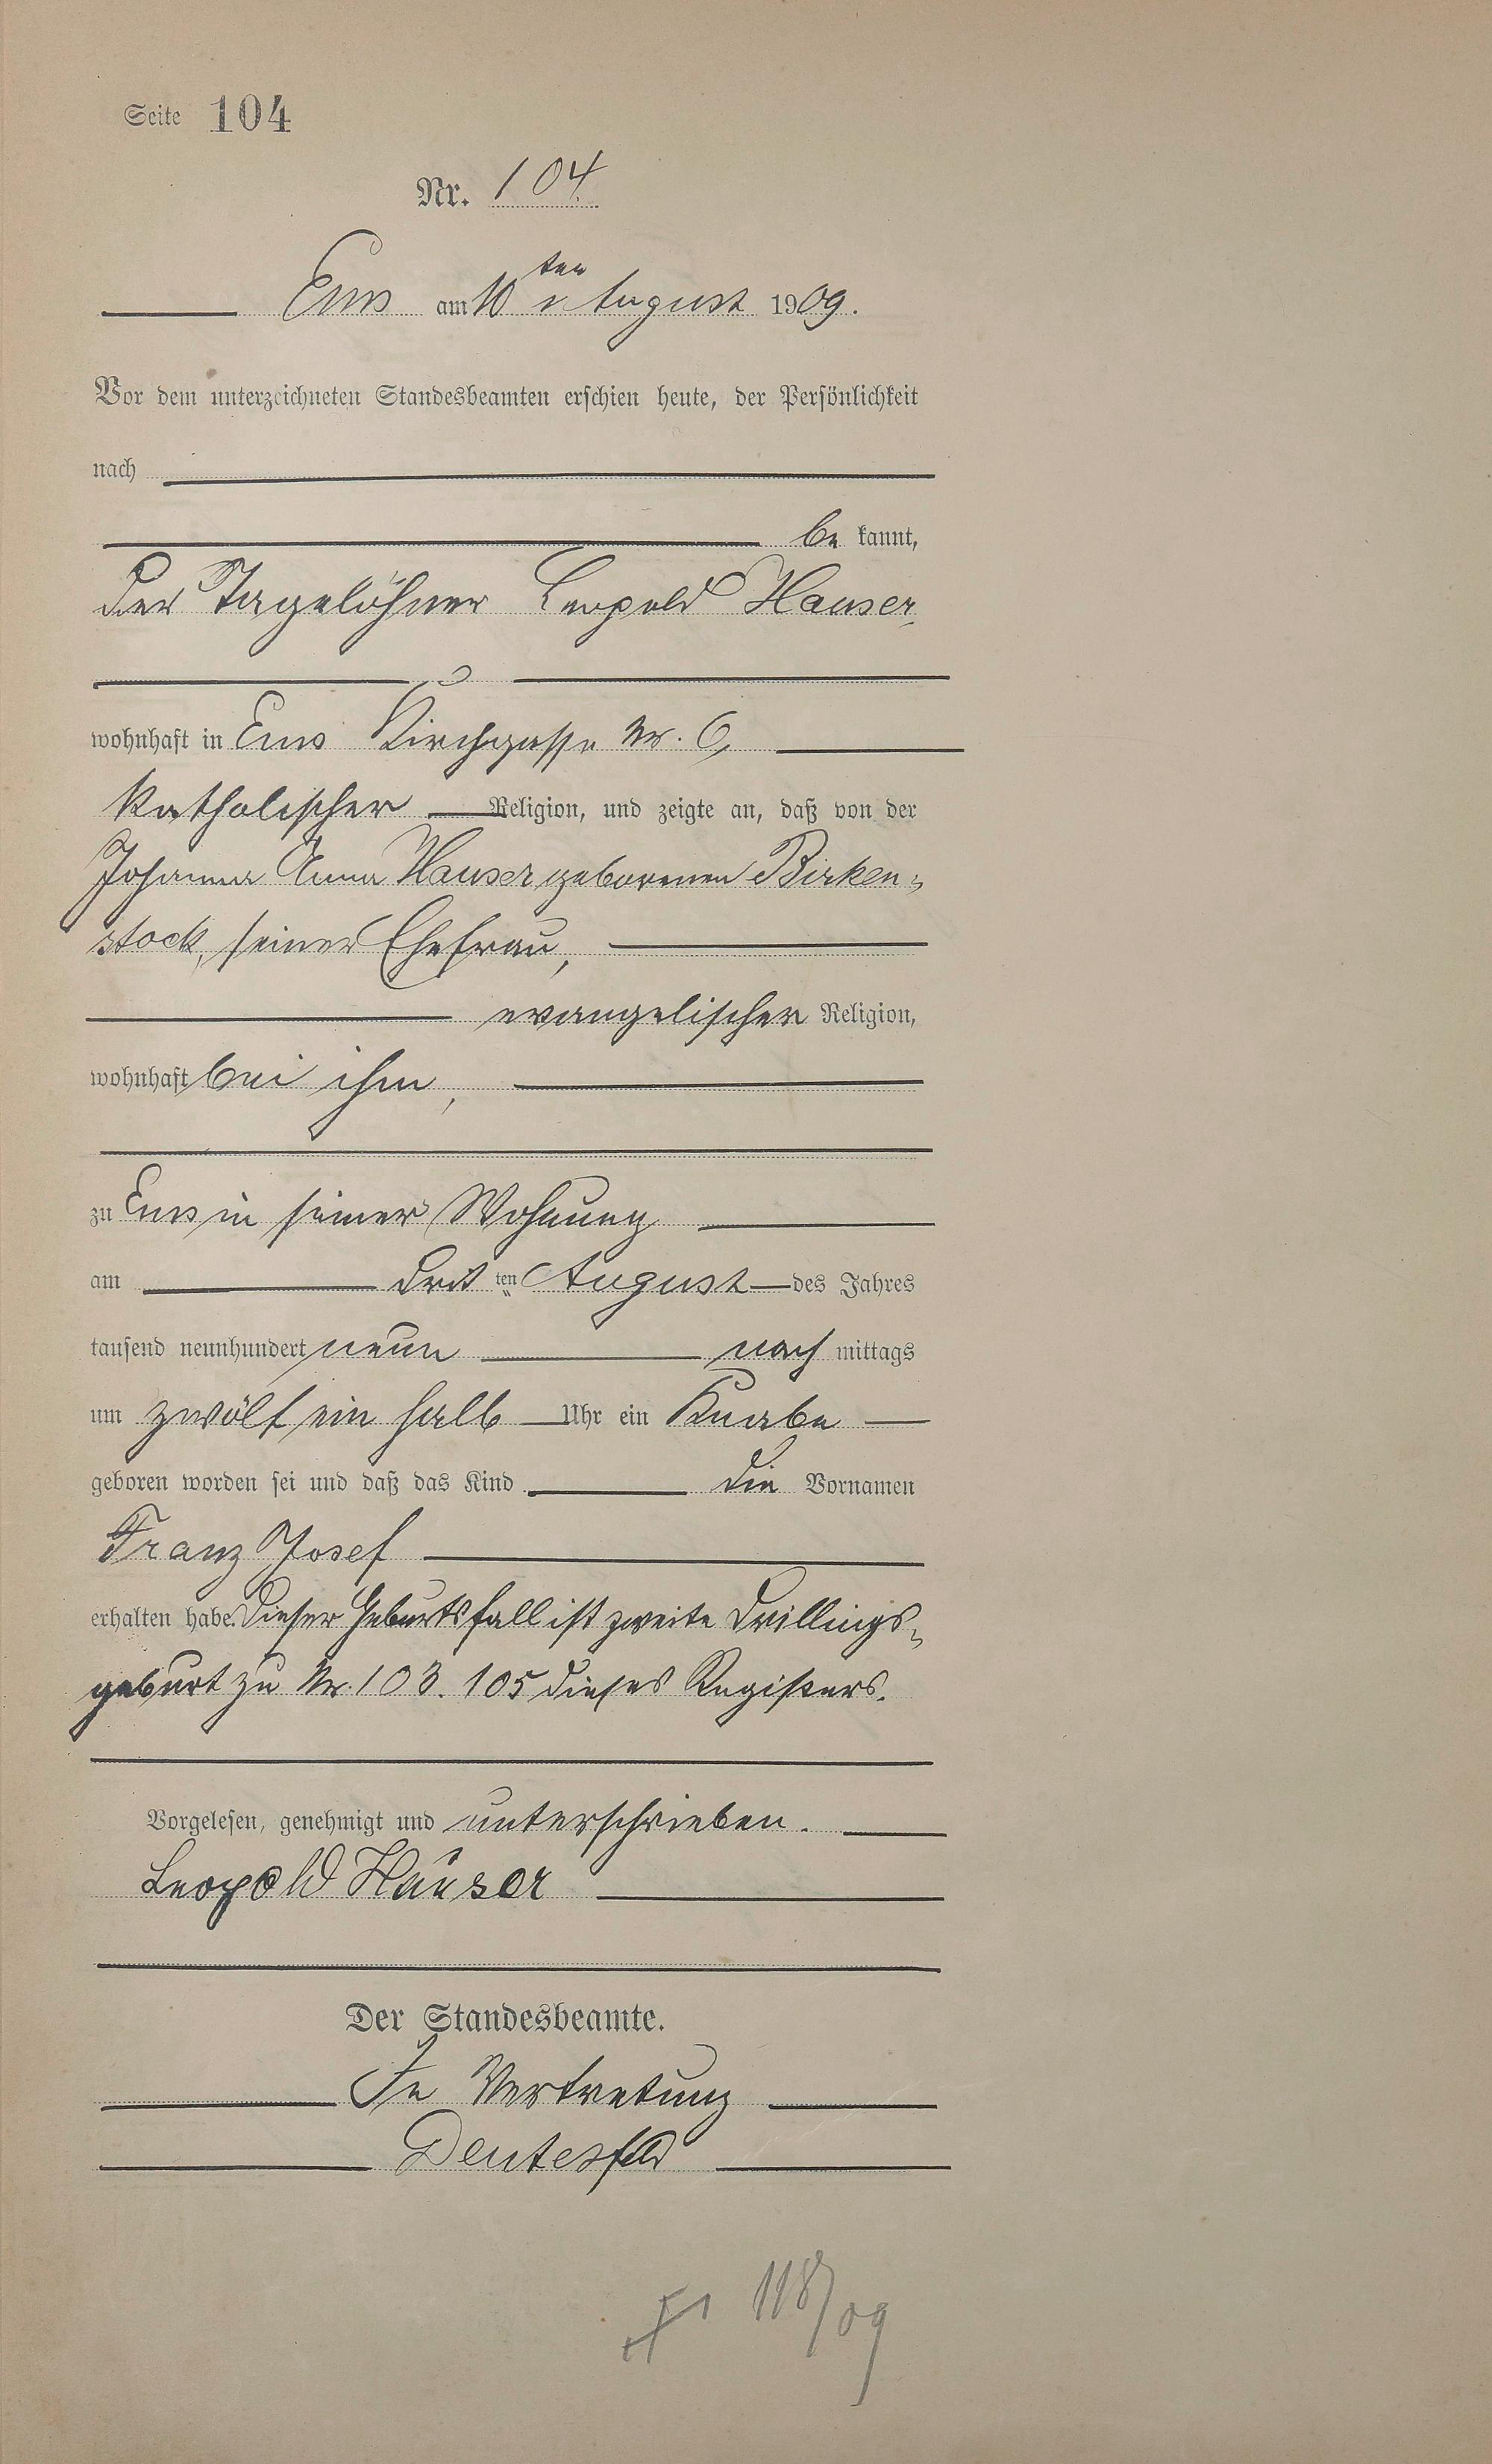 Seite 104
Nr. 104
Ems am 10ten August 1909.
Vor dem unterzeichneten Standesbeamten erschien heute, der Persönlichkeit
nach
be kannt,
der Tagelöhner Leopold Hauser,
wohnhaft in Ems Kirchgasse Nr. 6,
katholischer Religion, und zeigte an, daß von der
Johanna Anna Hauser geborenen Birken-
stock, seiner Ehefrau,
evangelischer Religion,
wohnhaft bei ihm,
zu Ems in seiner Wohnung
am dritten August des Jahres
tausend neunhundert neun nach mittags
um zwölf ein halb Uhr ein Knabe
geboren worden sei und daß das Kind die Vornamen
Franz Josef
erhalten habe. Dieser Geburtsfall ist zweite Drillings-
geburt zu Nr. 103. 105 dieses Registers.
Vorgelesen, genehmigt und unterschrieben.
Leopold Hauser
Der Standesbeamte.
In Vertretung
118/09